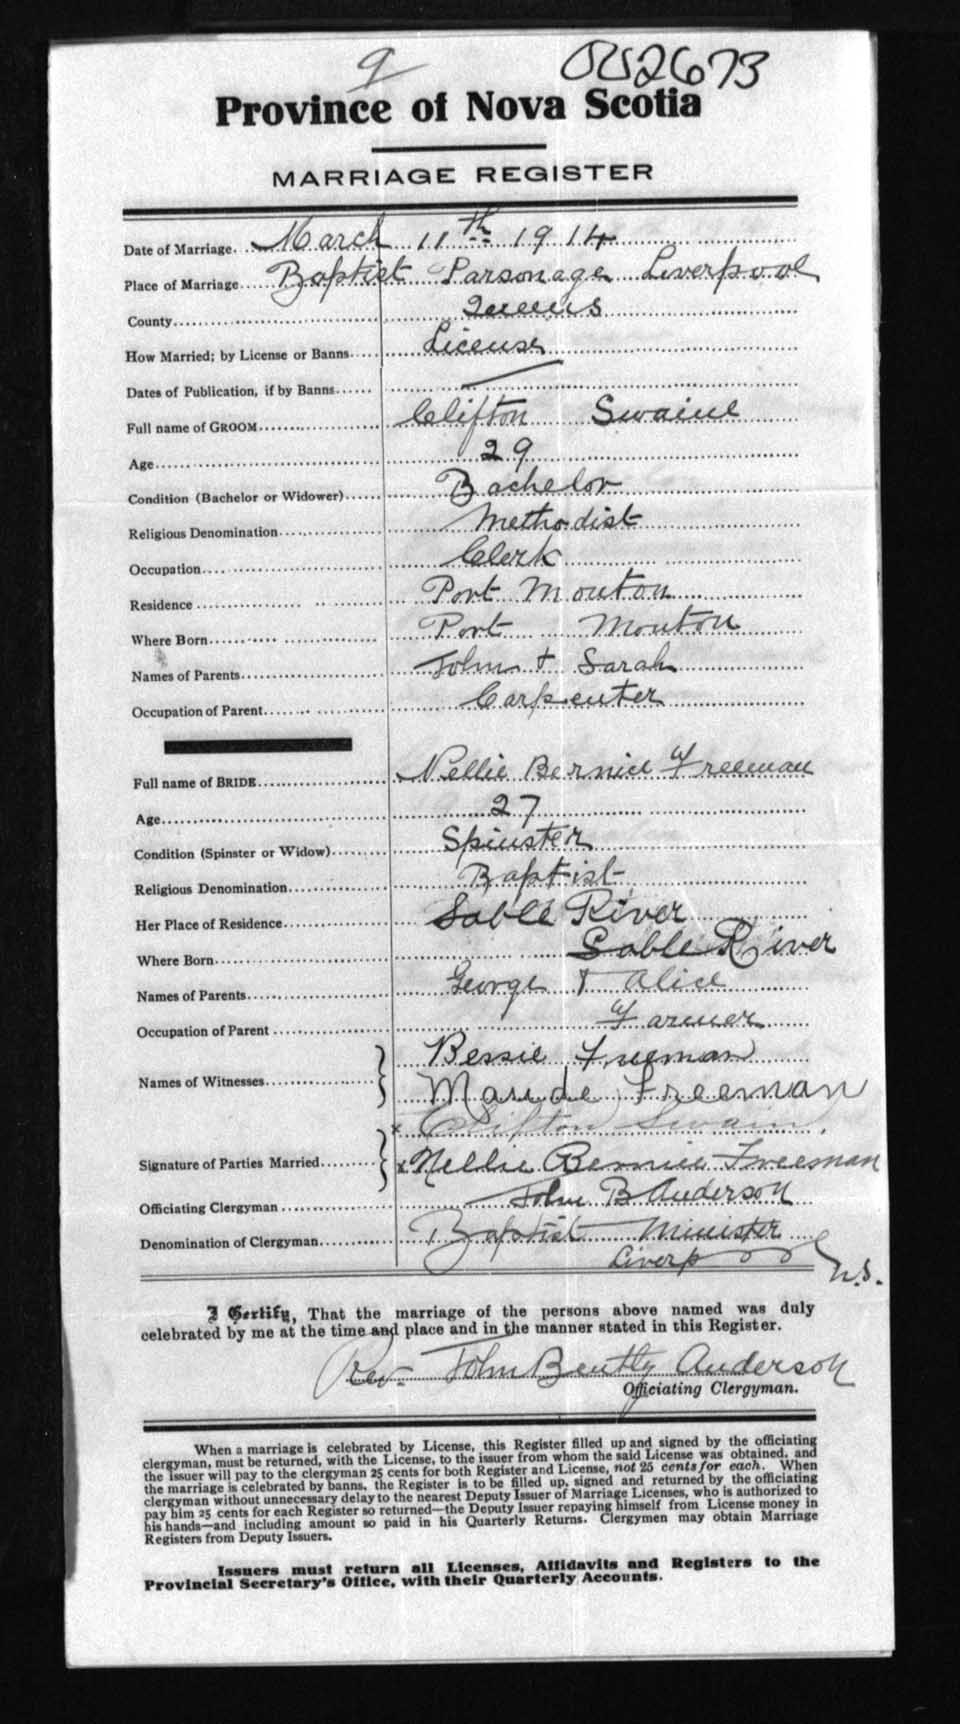 9
002673
Province of Nova Scotia
MARRIAGE REGISTER
Date of Marriage. March 11th 1914
Place of Marriage Baptist Parsonage Liverpool
County Queens
How Married; by License or Banns License
Dates of Publication, if by Banns —
Full name of GROOM Clifton Swaine
Age 29
Condition (Bachelor or Widower) Bachelor
Religious Denomination Methodist
Occupation Clerk
Residence Port Mouton
Where Born Port Mouton
Names of Parents John & Sarah
Occupation of Parent Carpenter
Full name of BRIDE Nellie Bernice Freeman
Age 27
Condition (Spinster or Widow) Spinster
Religious Denomination Baptist
Her Place of Residence Sable River
Where Born Sable River
Names of Parents George & Alice
Occupation of Parent Farmer
Bessie Freeman
Names of Witnesses
Maude Freeman
x Clifton Swain.
Signature of Parties Married x Nellie Bernice Freeman
Officiating Clergyman John B Anderson
Denomination of Clergyman Baptist Minister
Liverpool N.S.
I Certify, That the marriage of the persons above named was duly
celebrated by me at the time and place and in the manner stated in this Register.
Rev. John Bently Anderson
Officiating Clergyman.
When a marriage is celebrated by License, this Register filled up and signed by the officiating
clergyman, must be returned, with the License, to the issuer from whom the said License was obtained, and
the issuer will pay to the clergyman 25 cents for both Register and License, not 25 cents for each. When
the marriage is celebrated by banns, the Register is to be filled up, signed and returned by the officiating
clergyman without unnecessary delay to the nearest Deputy Issuer of Marriage Licenses, who is authorized to
pay him 25 cents for each Register so returned—the Deputy Issuer repaying himself from License money in
his hands—and including amount so paid in his Quarterly Returns. Clergymen may obtain Marriage
Registers from Deputy Issuers.
Issuers must return all Licenses, Affidavits and Registers to the
Provincial Secretary's Office, with their Quarterly Accounts.